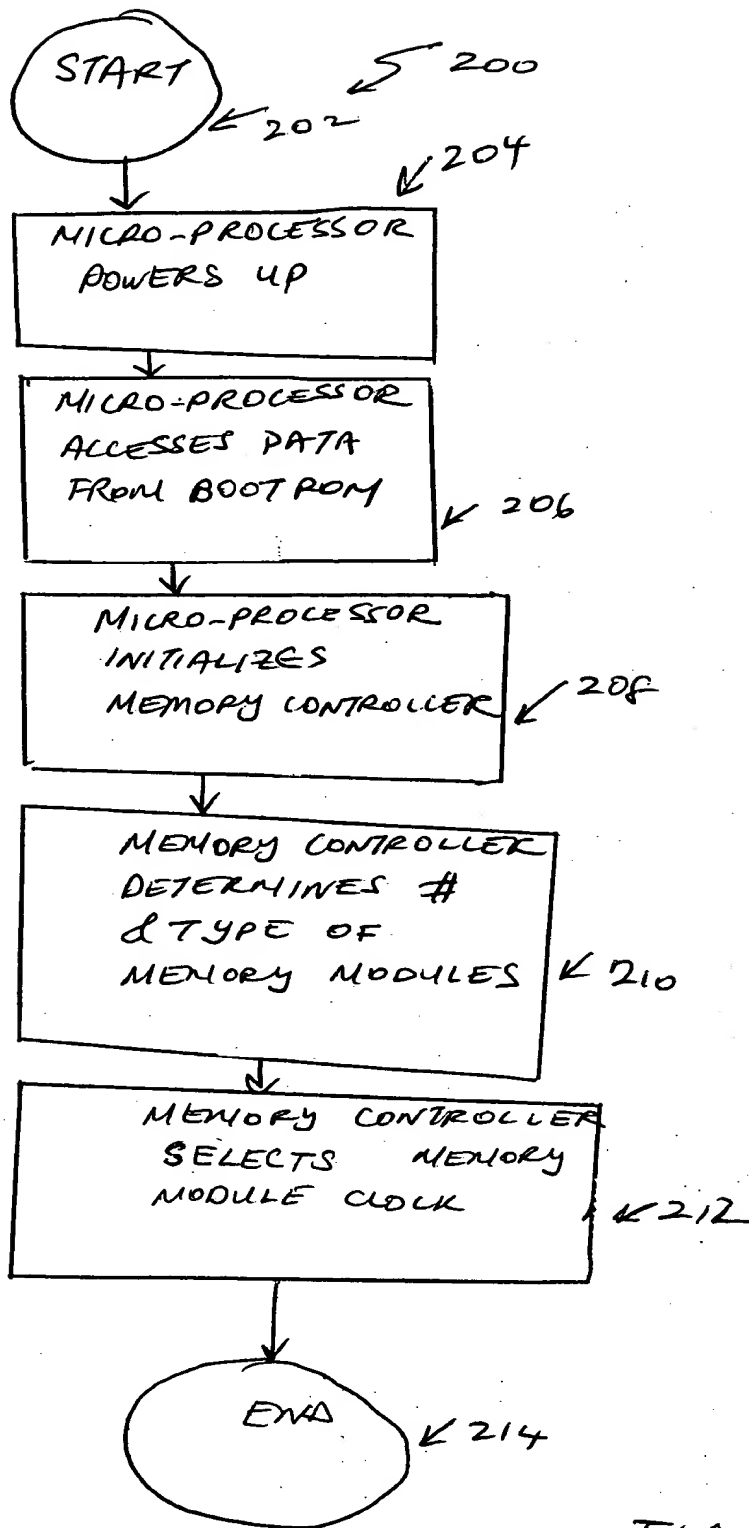 START
200
202
204
MICRO-PROCESSOR
POWERS UP
MICRO-PROCESSOR
ACCESSES DATA
FROM BOOT ROM
206
MICRO-PROCESSOR
INITIALIZES
MEMORY CONTROLLER
208
MEMORY CONTROLLER
DETERMINES #
& TYPE OF
MEMORY MODULES
210
MEMORY CONTROLLER
SELECTS MEMORY
MODULE CLOCK
212
END
214